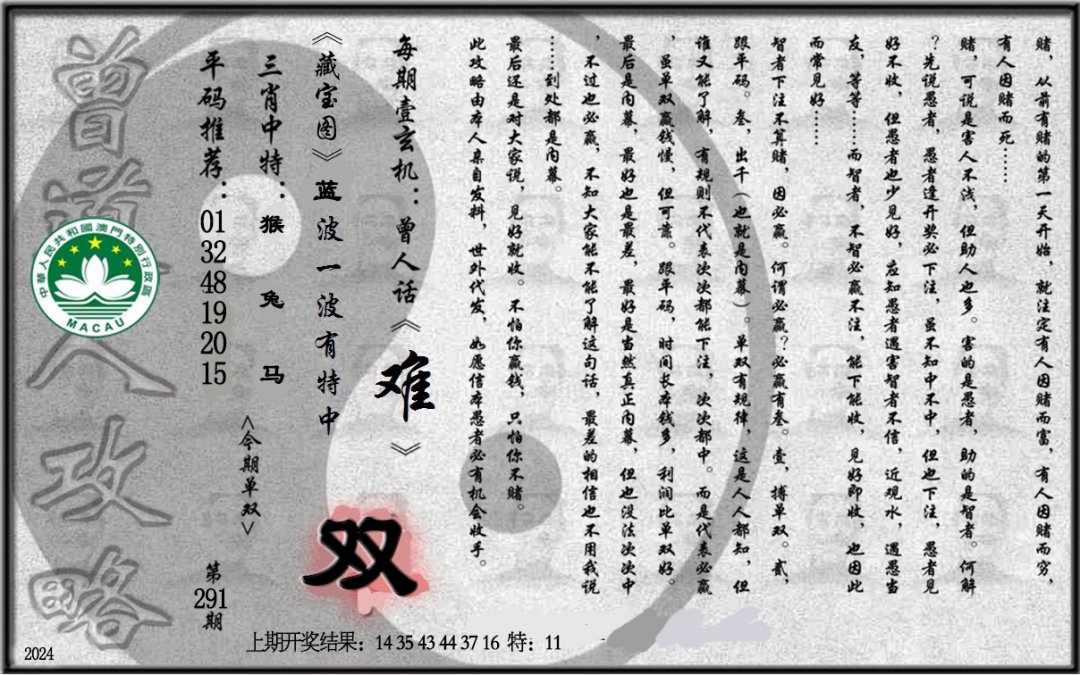 赌，从前有赌的第一天开始，就注定有人因赌而富，有人因赌而穷，
有人因赌而死……
赌，可说是害人不浅，但助人也多。害的是愚者，助的是智者。何解
？先说愚者，愚者逢开奖必下注，虽不知中不中，但也下注，愚者见
好不收，但愚者也少见好，应知愚者遇害智者不信，近观水，遇愚当
友，等等……而智者，不智必赢不注，能下能收，见好即收，也因此
而常见好……
智者下注不算赌，因必赢。何谓必赢？必赢有叁。壹，搏单双。贰，
跟平码。叁，出千（也就是内幕）。单双有规律，这是人人都知，但
谁又能了解，有规则不代表次次都能下注，次次都中。而是代表必赢
，虽单双赢钱慢，但可靠。跟平码，时间长本钱多，利润比单双好。
最后是内幕，最好也是最差，最好是当然真正内幕，但也没法次次中
，不过也必赢，不知大家能不能了解这句话，最差的相信也不用我说
……到处都是内幕。
最后还是对大家说，见好就收。不怕你赢钱，只怕你不赌。
此攻略由本人亲自发料，世外代发，如愿信本愚者必有机会收手。
每期壹玄机：曾人话《难》
《藏宝图》蓝波一波有特中
双
三肖中特：猴 兔 马
<今期单双>
平码推荐：01 32 48 19 20 15
第291期
曾道人攻略
中華人民共和國澳門特別行政區
MACAU
上期开奖结果：14 35 43 44 37 16 特：11
2024